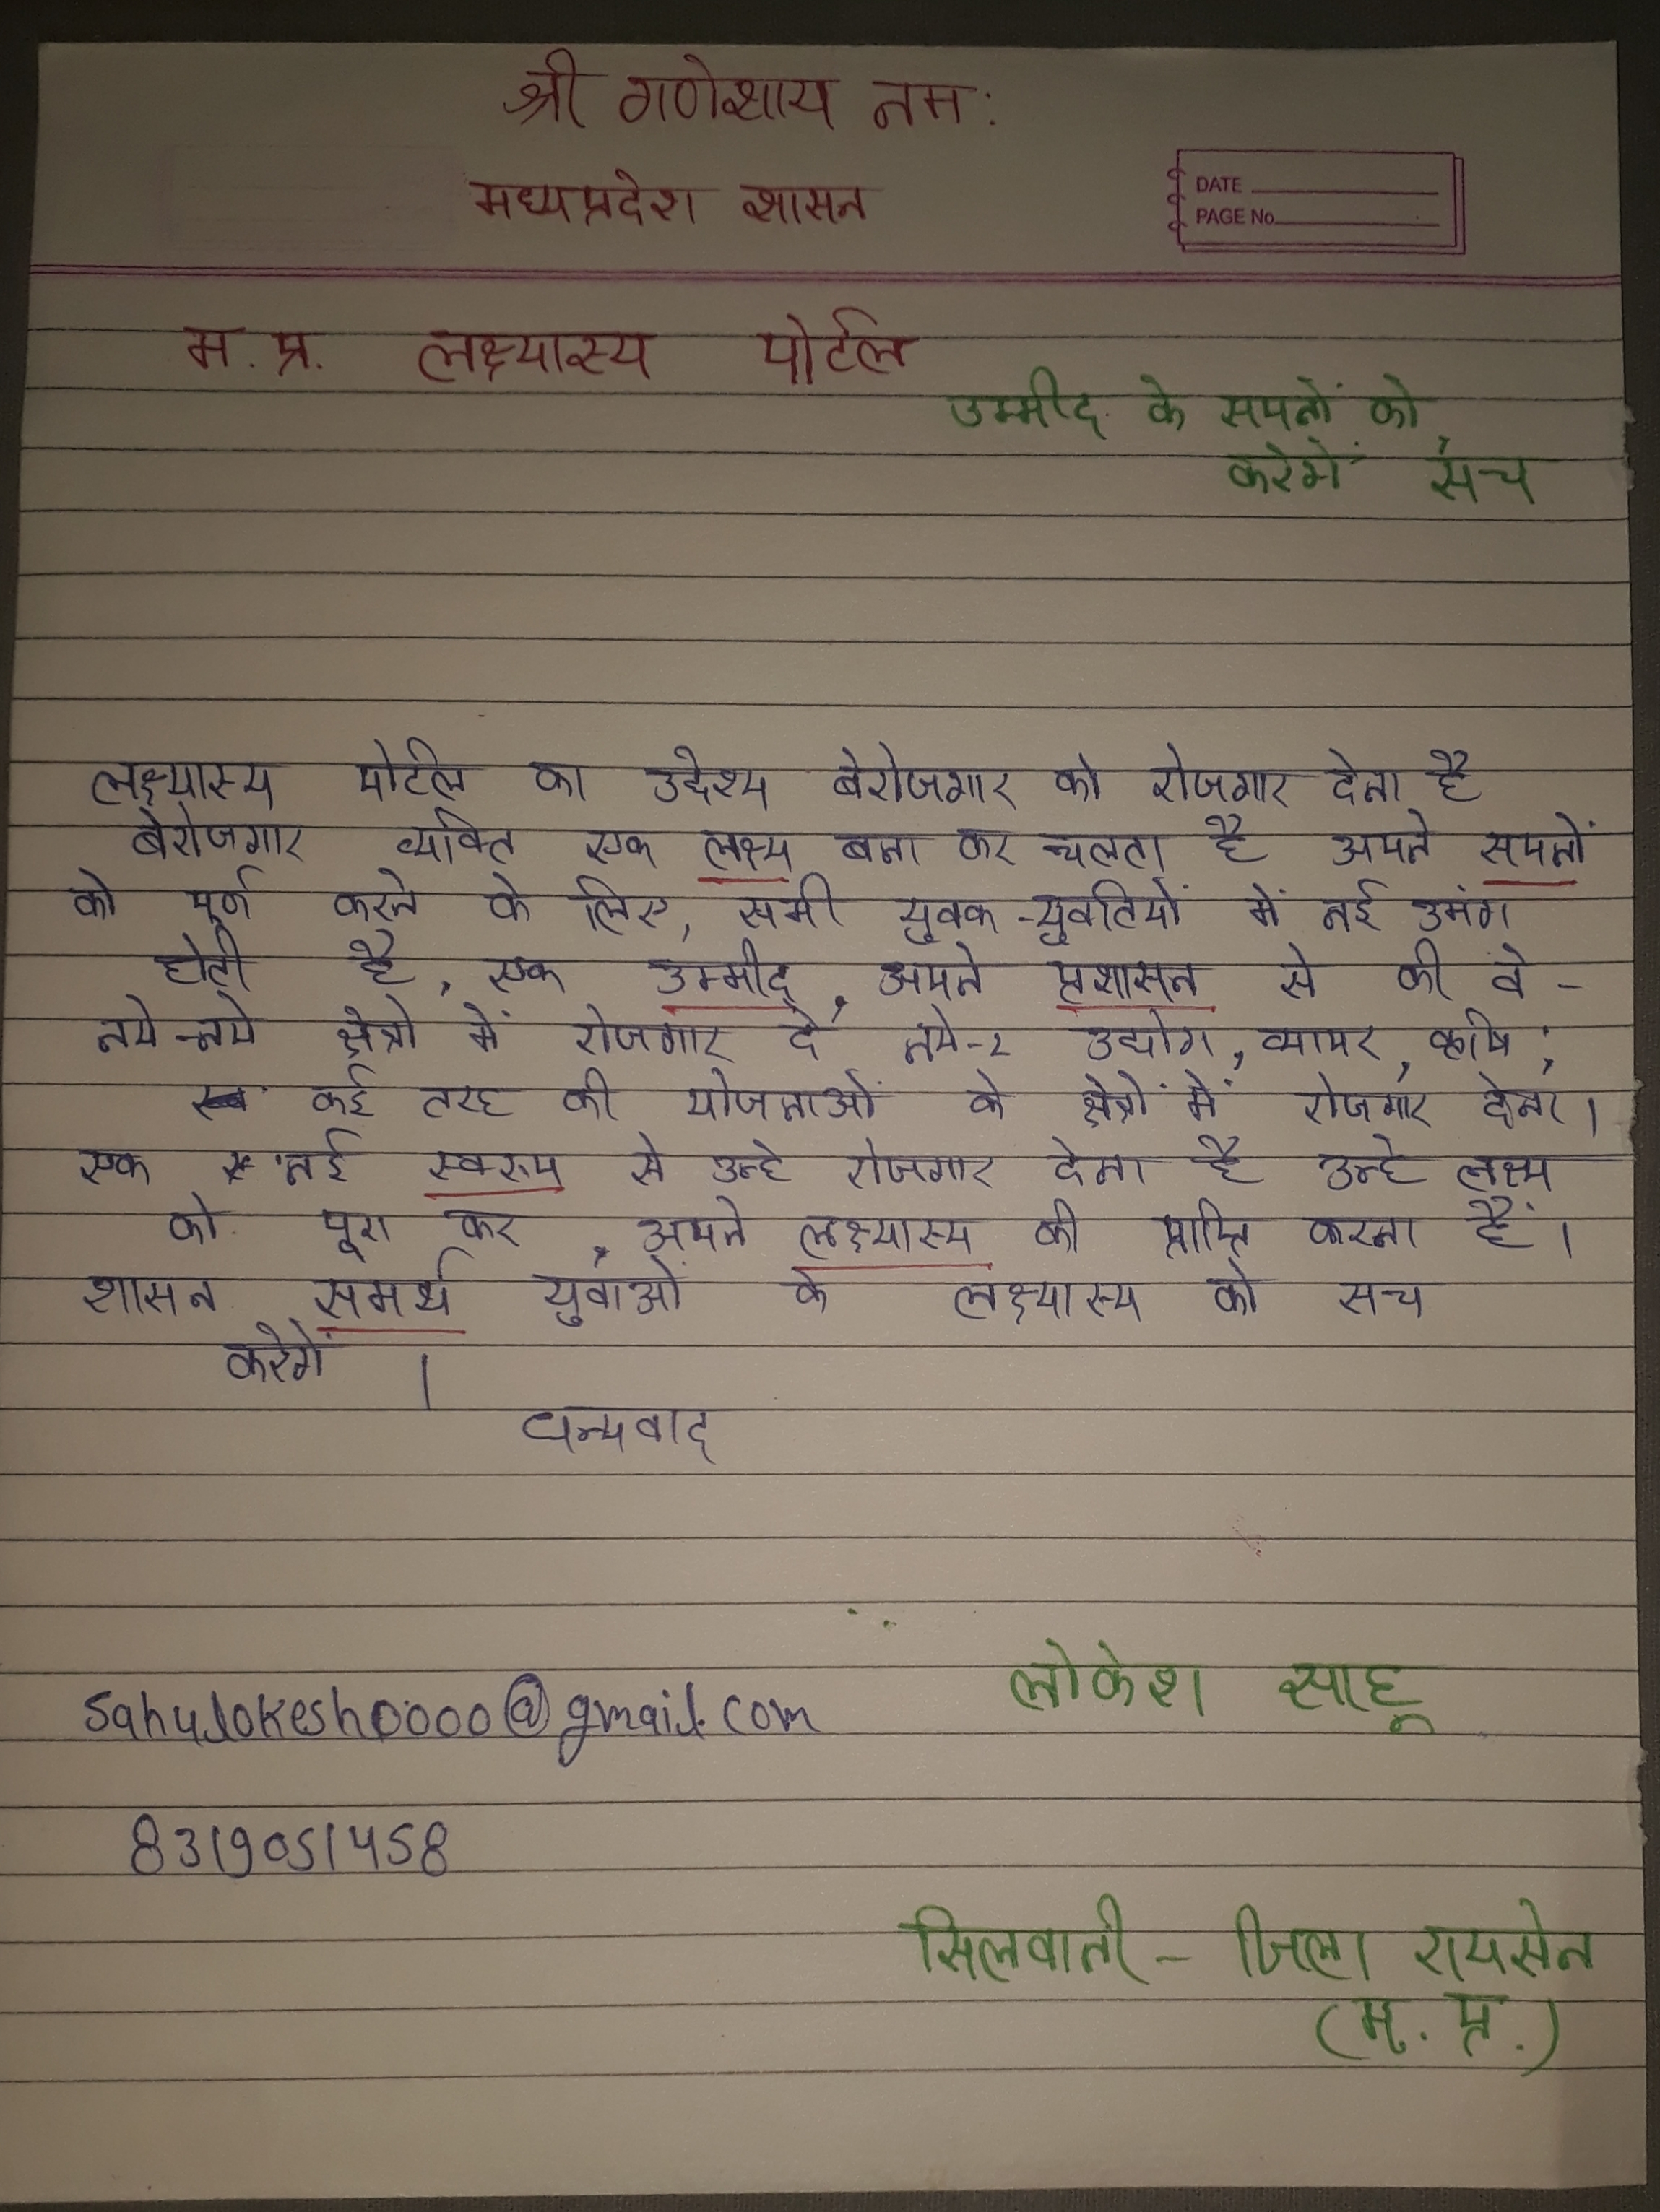 श्री गणेशाय नम:
मध्यप्रदेश शासन
DATE
PAGE No.
म.प्र. लक्ष्यास्य पोर्टल
उम्मीद के सपनों को,
करेगें सच
लक्ष्यास्य पोर्टल का उद्देश्य बेरोजगार को रोजगार देना है
बेरोजगार व्यक्ति एक लक्ष्य बना कर चलता है अपने सपनों
को पूर्ण करने के लिए, सभी युवक-युवतियों में नई उमंग
होती है, एक उम्मीद, अपने प्रशासन से की वे -
नये-नये क्षेत्रो में रोजगार दे, नये-२ उद्योग, व्यापर, कृषि,
कई तरह की योजनाओं के क्षेत्रों में रोजगार देना।
एक नई स्वरूप से उन्हे रोजगार देना है उन्हे लक्ष्य
को पूरा कर, अपने लक्ष्यास्य की प्राप्ति करना हैं।
शासन समर्थ युवाओं के लक्ष्यास्य को सच
करेगें ।
धन्यवाद
लोकेश साहू
sahulokesh0000@gmail.com
8319051458
सिलवानी - जिला रायसेन
(म.प्र.)